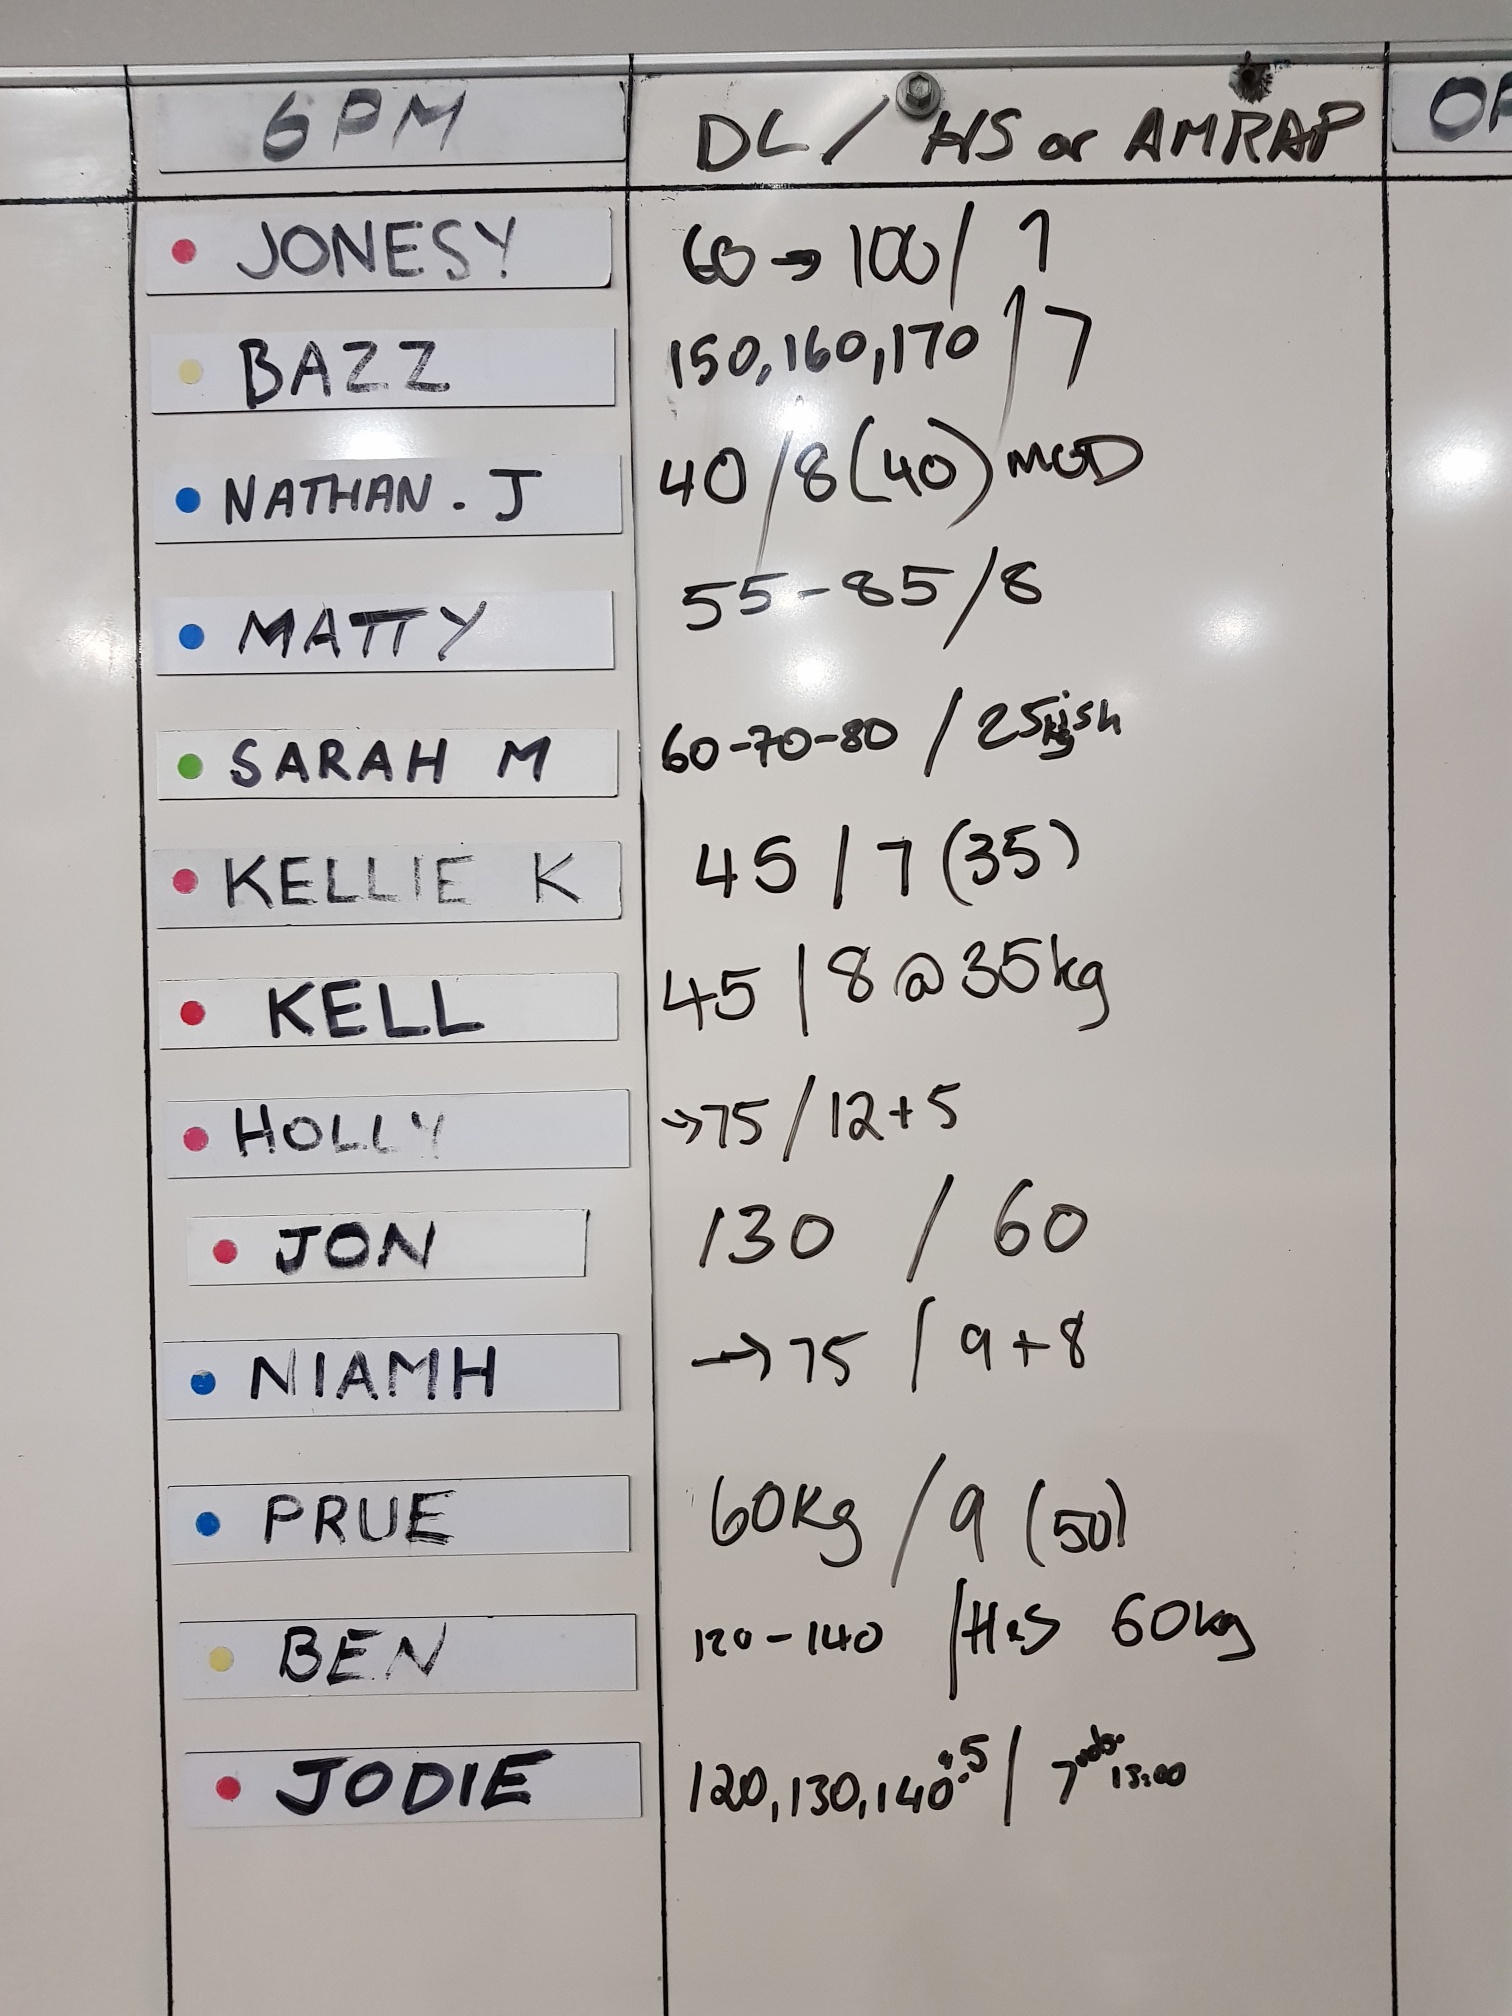 6PM DL / HS or AMRAP OP
JONESY 60 → 100 / 7
BAZZ 150, 160, 170 / 7
NATHAN . J 40 / 8 (40) MOD
MATTY 55 - 85 / 8
SARAH M 60 - 70 - 80 / 25kgish
KELLIE K 45 / 7 (35)
KELL 45 / 8 @ 35kg
HOLLY → 75 / 12 + 5
JON 130 / 60
NIAMH → 75 / 9 + 8
PRUE 60kg / 9 (50)
BEN 120 - 140 / H.S 60kg
JODIE 120, 130, 140 / 7